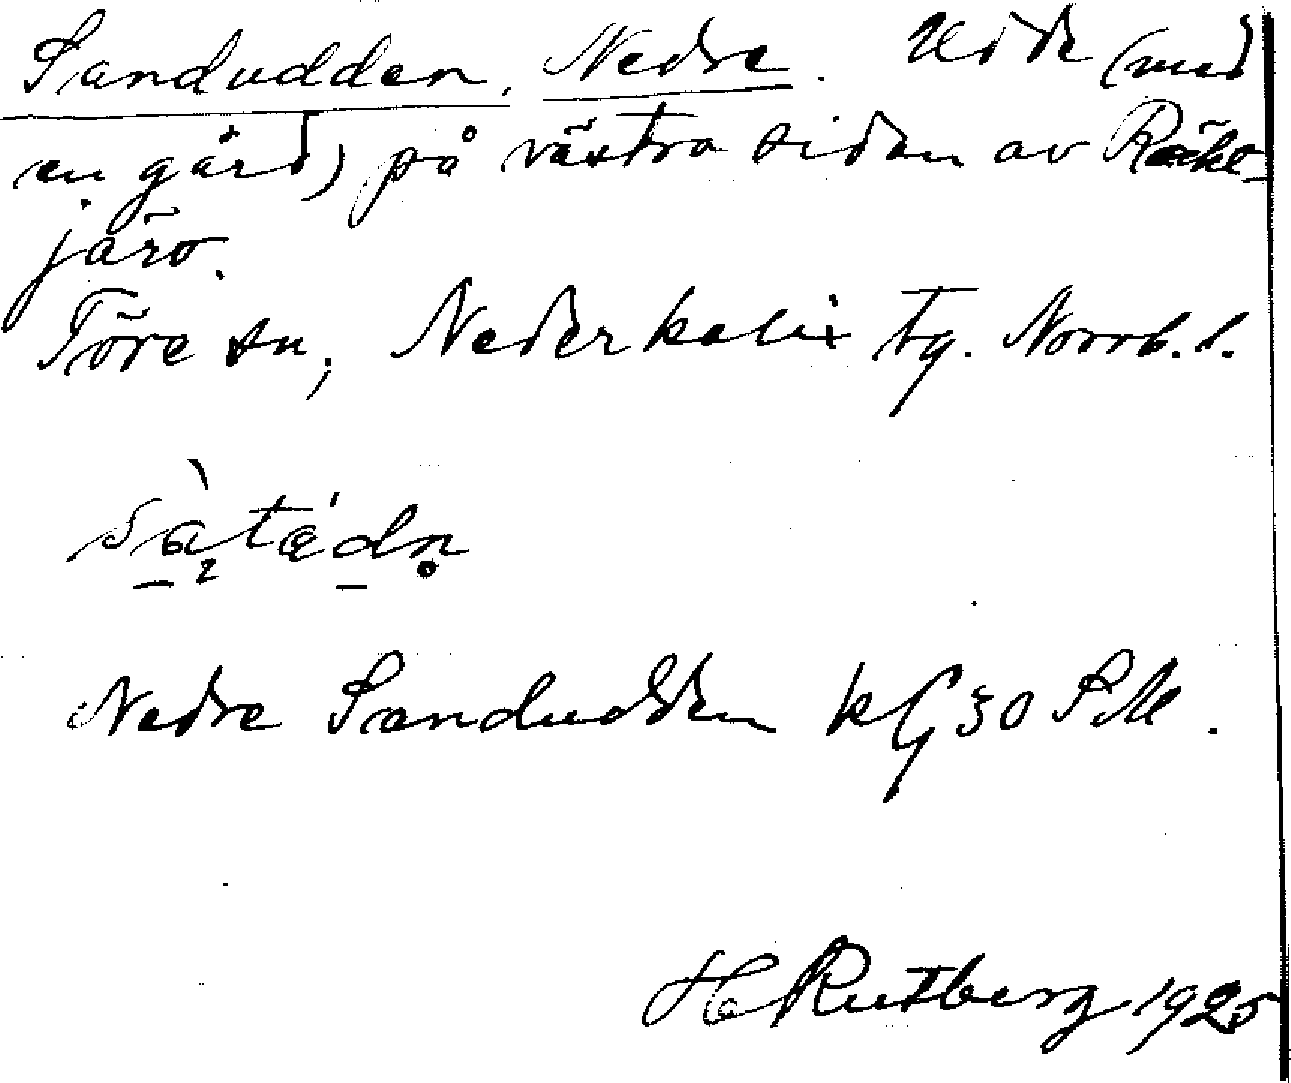 Sandudden, Nedre. Udde (med
en gård) på västra sidan av Räkt-
järv.
Töre sn, Nederkalix tg. Norrb. l.
Nedre Sandudden kG 30 SM.
H Rutberg 1925